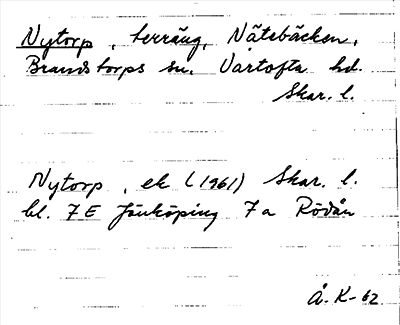 Nytorp, terräng, Nätebäcken,
Brandstorps sn. Vartofta hd.
Skar. l.
Nytorp, ek (1961) Skar. l.
bl. 7E Jönköping 7a Rödån
Å. K-62